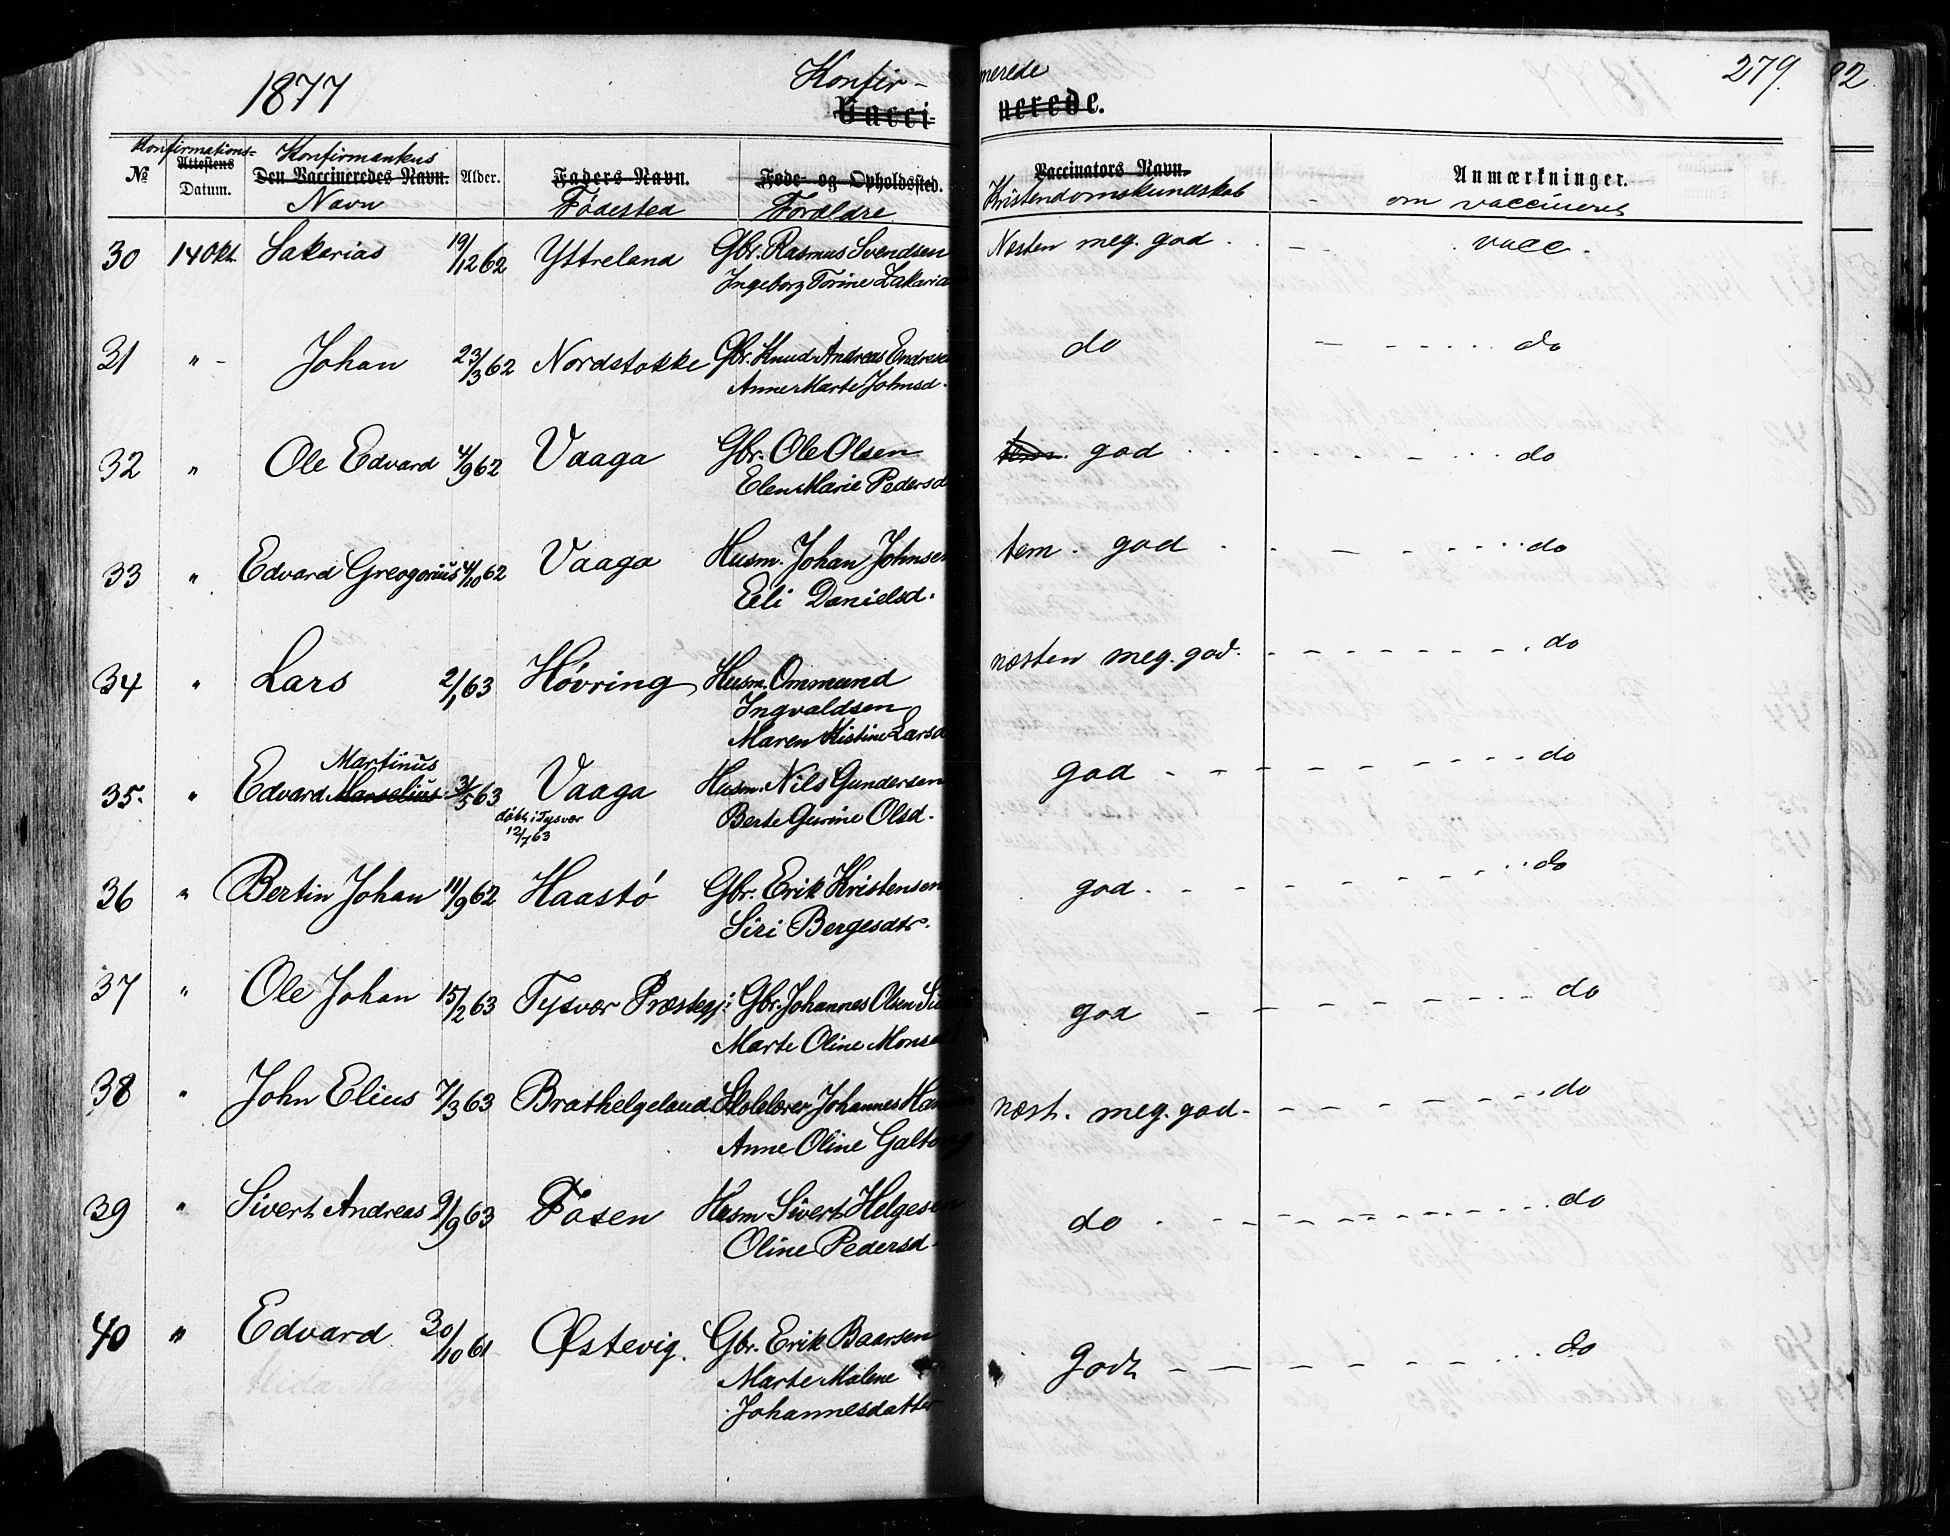 1877 Konfir- merede 279.
Vacci- nerede.
Konfirmations-
No Attestens Datum. Konfirmantens Den Vaccineredes Navn. Navn Alder. Faders Navn. Fødested Føde- og Opholdssted. Forældre Vaccinators Navn. Kristendomskundskab Anmærkninger. om vaccineret
30 14 Okt. Sakarias 19/12 62 Yttreland Gbr. Rasmus Svendsen Næsten meg. god vacc.
Ingeborg Torine Zakaria
31 " - Johan 23/3 62 Nordstokke Gbr. Knud Andreas Endresen do do
Anne Marte Johnsd.
32 " Ole Edvard 4/9 62 Vaaga Gbr. Ole Olsen tem. god do
Elen Marie Pedersd
33 " Edvard Greogorius 4/10 62 Vaaga Husm. Johan Johnsen tem. god do
Eeli Danielsd.
34 " Lars 2/1 63 Høvring Husm. Ommund næsten meg. god. do
Ingvaldsen
Maren Kistine Larsd
Martinus
35. " Edvard Marselius 3/5 63 Vaaga Husm. Nils Gundersen god do
døbt i Tysvær 12/7 63 Berte Gurine Olsd.
36 " Bertin Johan 11/9 62 Haastø Gbr. Erik Kristensen god. do
Siri Bergesdtr.
37 " Ole Johan 15/2 63 Tysvær Præstegj: Gbr. Johannes Olsen god do
Marte Oline Monsd
38 " John Elius 7/3 63 Brathelgeland Skolelærer Johannes næst. meg. god- do
Anne Oline Galtung
39 " Sivert Andreas 9/9 63 Fosen Husm Sivert Helgesen do do
Oline Pedersd.
40 " Edvard 30/10 61 Østevig. Gbr. Erik Baarsen Godt do
Marte Malene
Johannesdatter